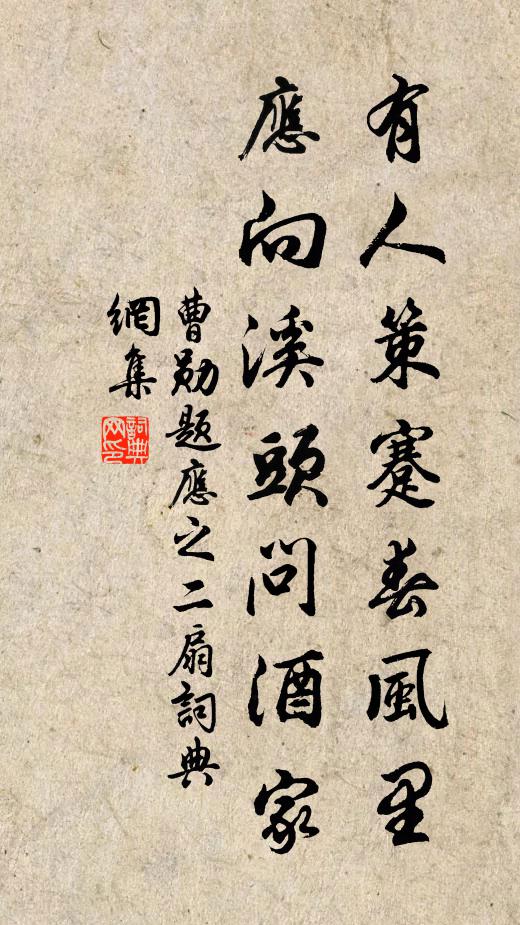 有人策蹇春風里
應向溪頭問酒家
曹勛題應之二扇詞典
網集
詞典
網印